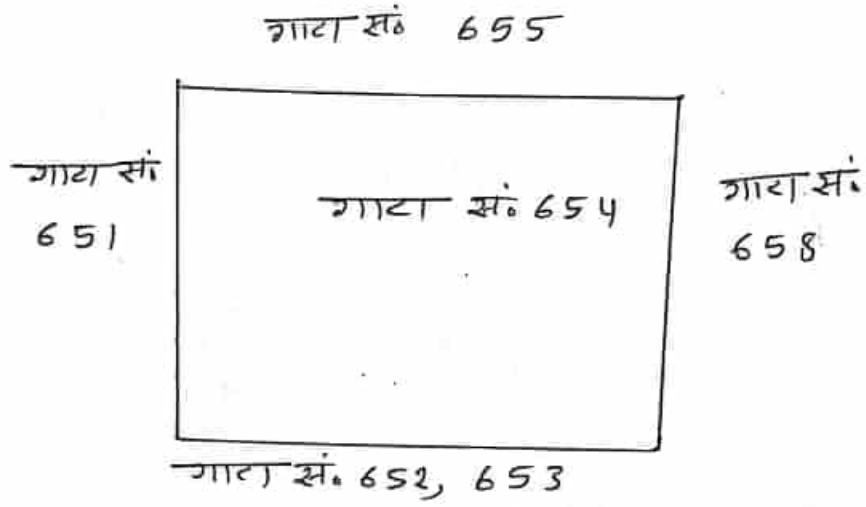 गाटा सं० 655
गाटा सं.
651
गाटा सं. 654
गाटा सं.
658
गाटा सं. 652, 653